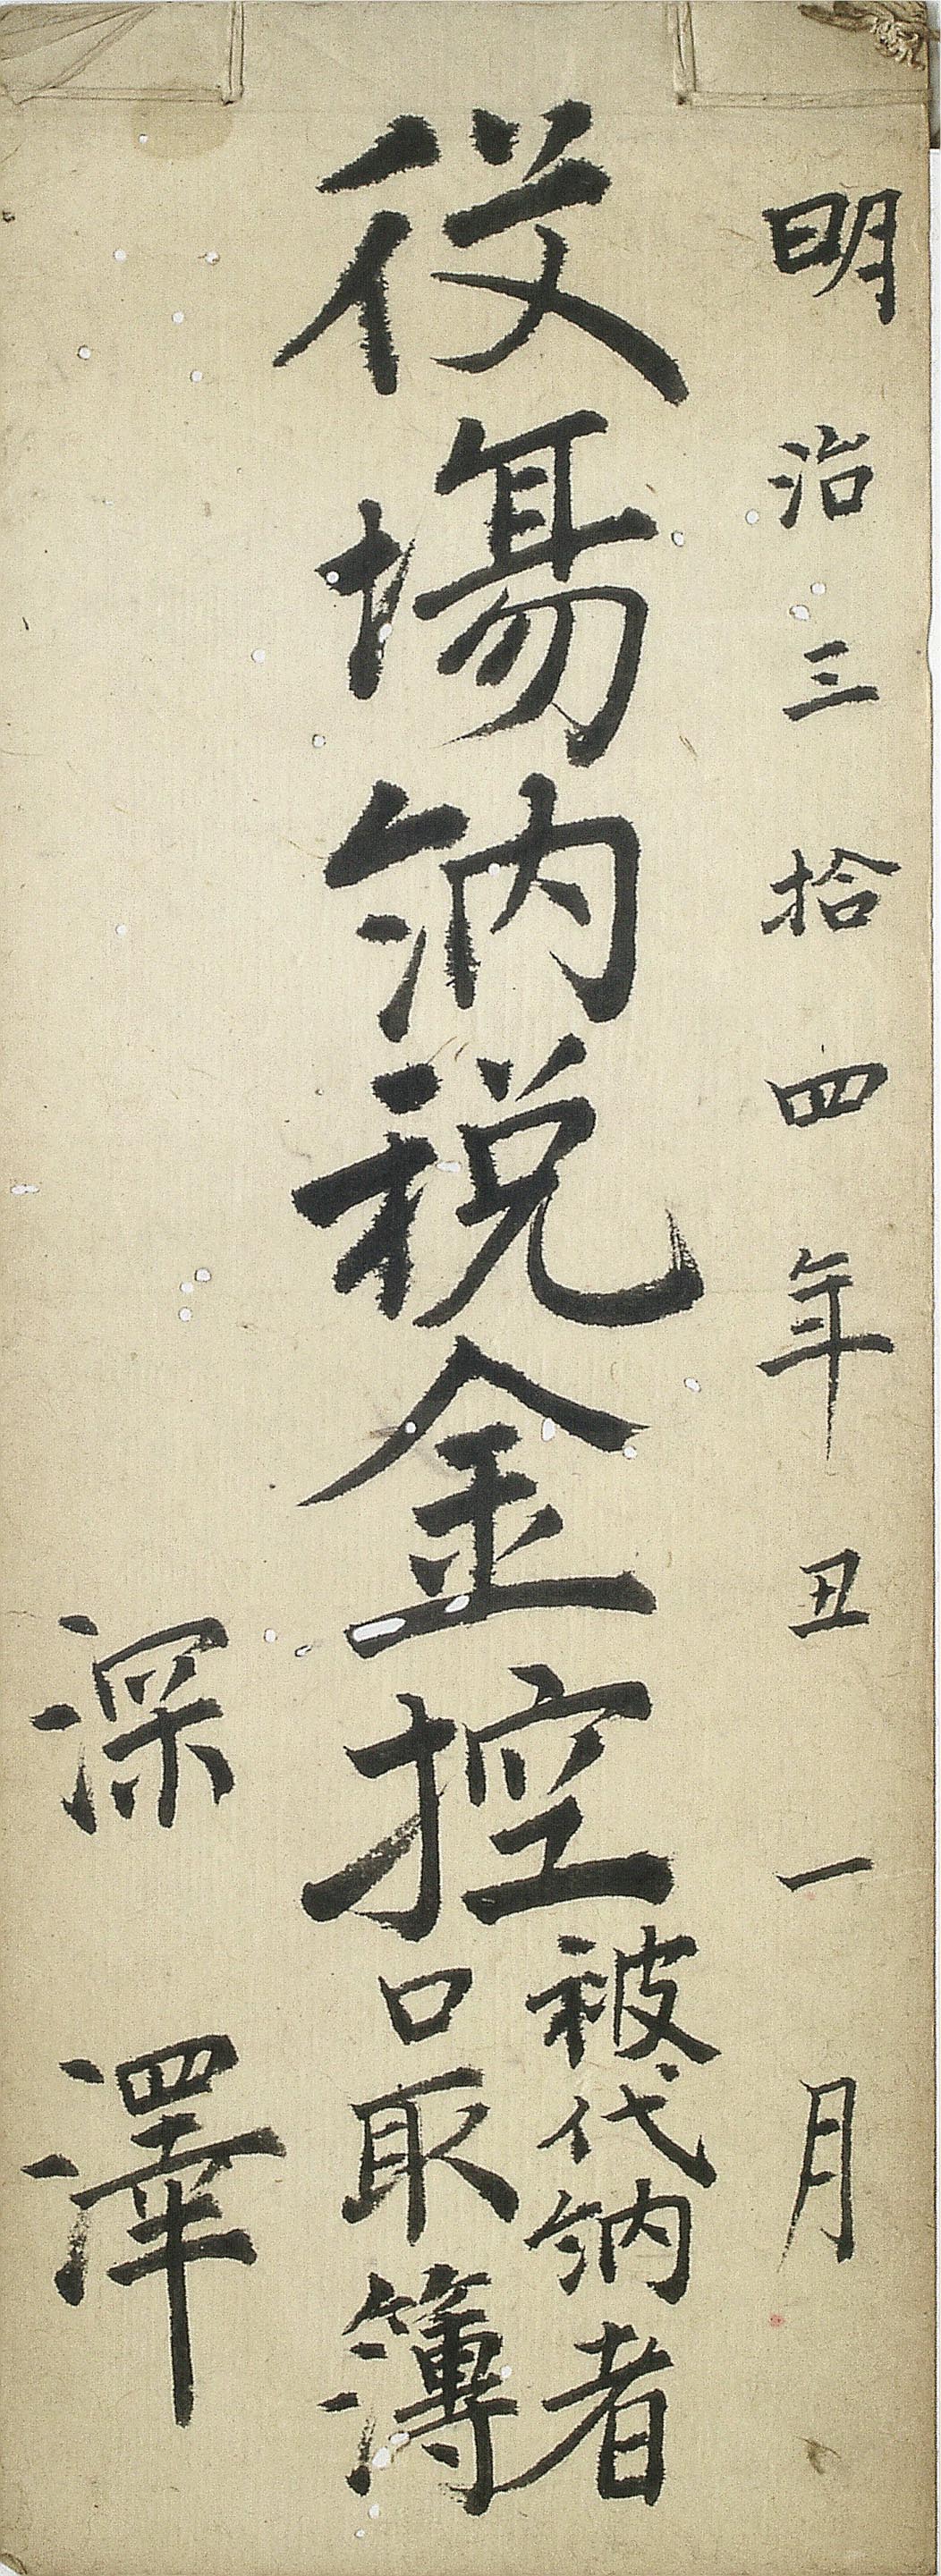 明治三拾四年丑一月
役場納税金控
被代納者
口取簿
深澤